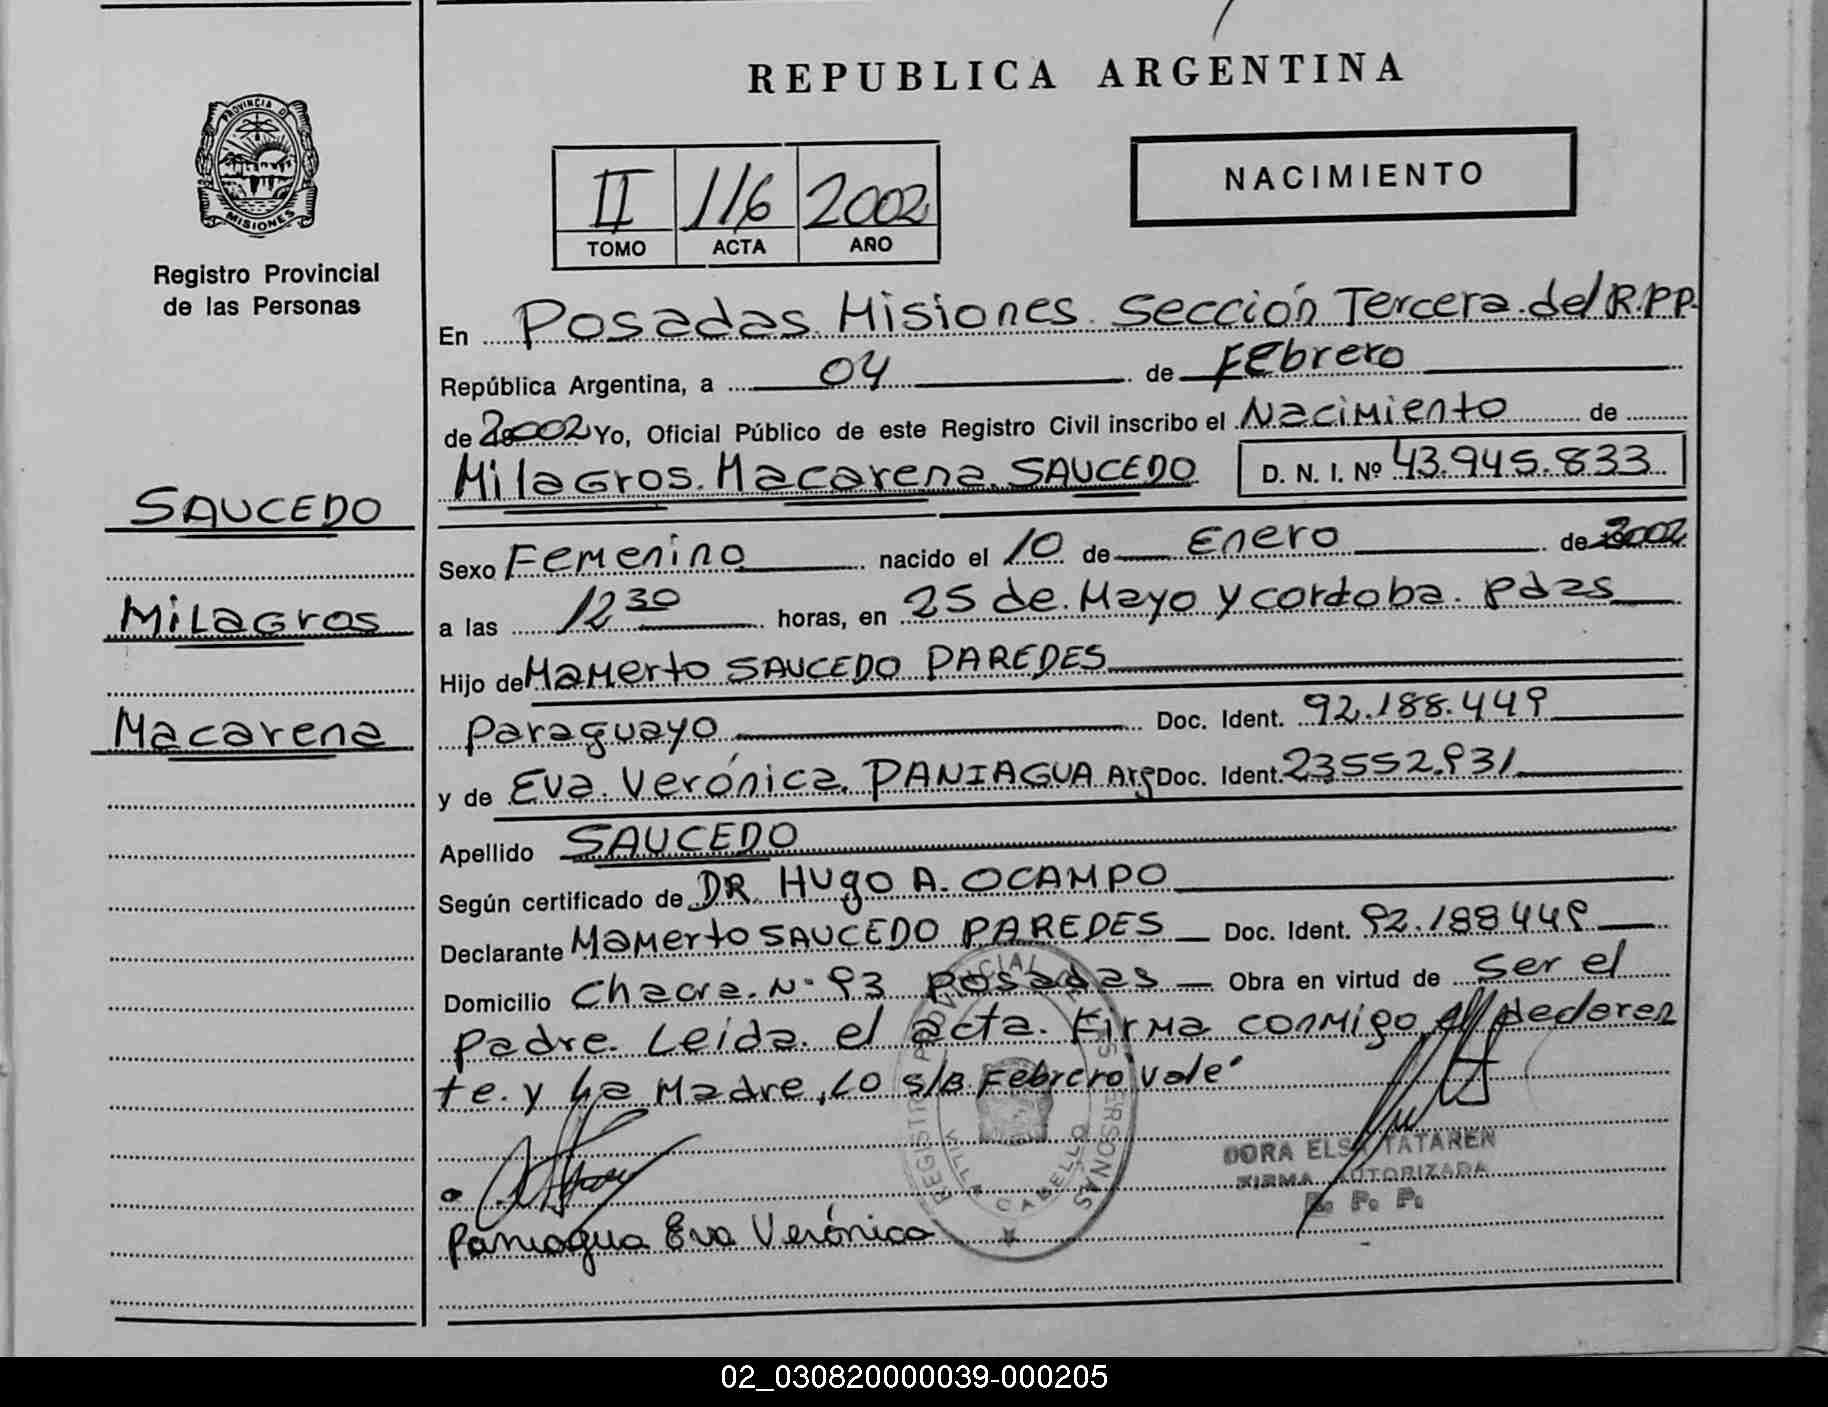 REPUBLICA ARGENTINA
PROVINCIA DE
MISIONES
Registro Provincial
de las Personas
II 116 2002
TOMO ACTA AÑO
NACIMIENTO
SAUCEDO
Milagros
Macarena
En Posadas Misiones Sección Tercera del R.P.P.
República Argentina, a 04 de Febrero
de 2002 Yo, Oficial Público de este Registro Civil inscribo el Nacimiento de
Milagros Macarena SAUCEDO D. N. I. Nº 43.945.833
Sexo Femenino nacido el 10 de Enero de 2002
a las 12 30 horas, en 25 de Mayo y cordoba. pdas
Hijo de Mamerto SAUCEDO PAREDES
Paraguayo Doc. Ident. 92.188.449
y de Eva Verónica PANIAGUA Arg Doc. Ident. 23552.931
Apellido SAUCEDO
Según certificado de DR. HUgO A. OCAMPO
Declarante Mamerto SAUCEDO PAREDES Doc. Ident. 92.188449
Domicilio Chacra Nº 93 posadas Obra en virtud de ser el
padre. Leida el acta. Firma conmigo el declaren
te. y La Madre, LO S/B. Febrero Vale
REGISTRO PROVINCIAL DE LAS PERSONAS
VILLA CABELLO
DORA ELSA TATAREN
FIRMA AUTORIZADA
R. P. P.
Paniagua Eva Verónica
02_030820000039-000205